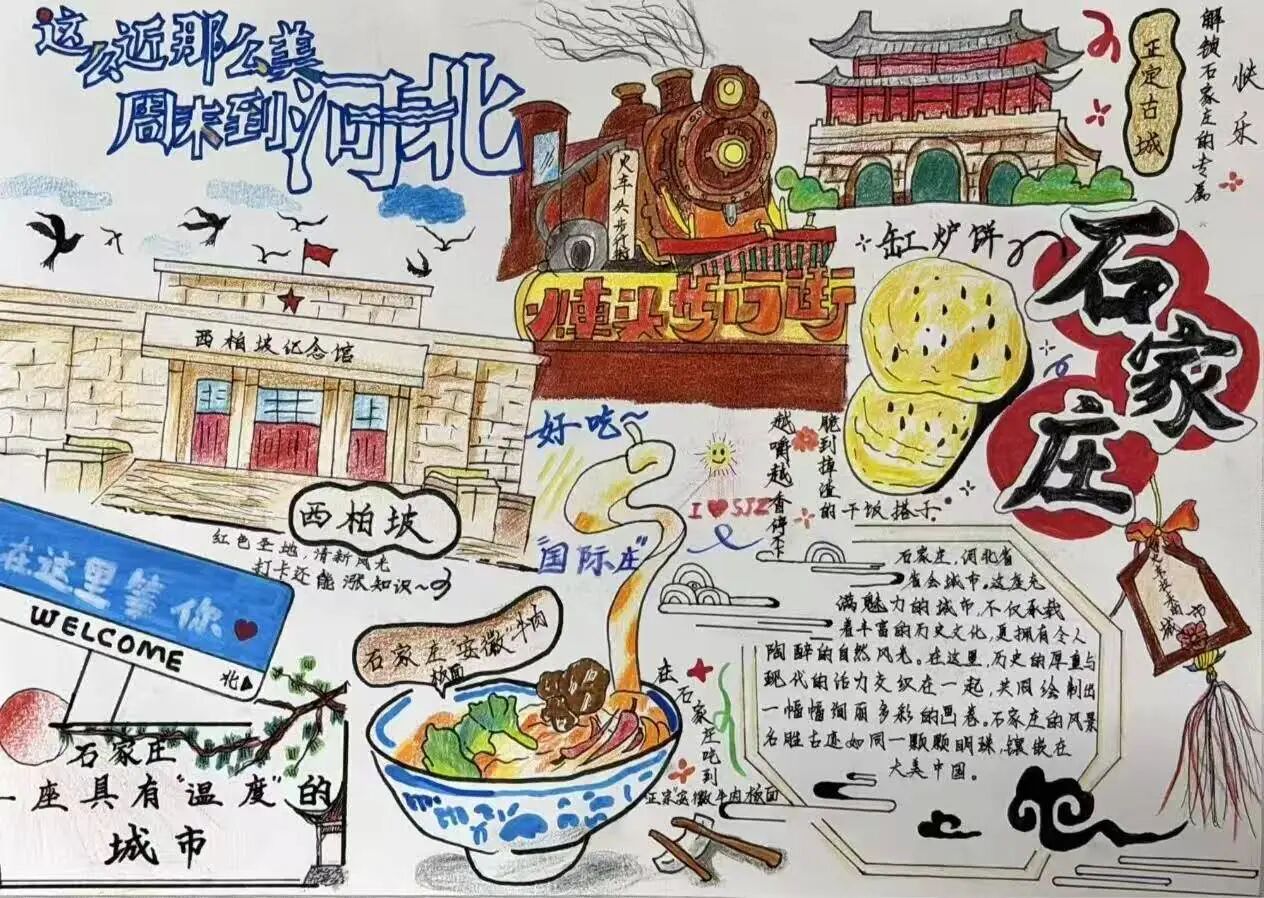 这么近那么美
周末到河北
火车头步行街
火車头步行街
正定古城
解锁石家庄的专属
快乐
缸炉饼
石家庄
西柏坡纪念馆
西柏坡
红色圣地,清新风光
打卡还能涨知识~
好吃~
"国际庄"
I ❤ SJZ
越嚼越香停不下
脆到掉渣的干饭搭子
在这里等你
WELCOME
北
石家庄
一座具有"温度"的
城市
石家庄安徽牛肉
板面
在石家庄吃到
正宗"安徽牛肉板面
石家庄,河北省
省会城市,这座充
满魅力的城市,不仅承载
着丰富的历史文化,更拥有令人
陶醉的自然风光。在这里,历史的厚重与
现代的活力交织在一起,共同绘制出
一幅幅绚丽多彩的画卷。石家庄的风景
名胜古迹如同一颗颗明珠,镶嵌在
大美中国。